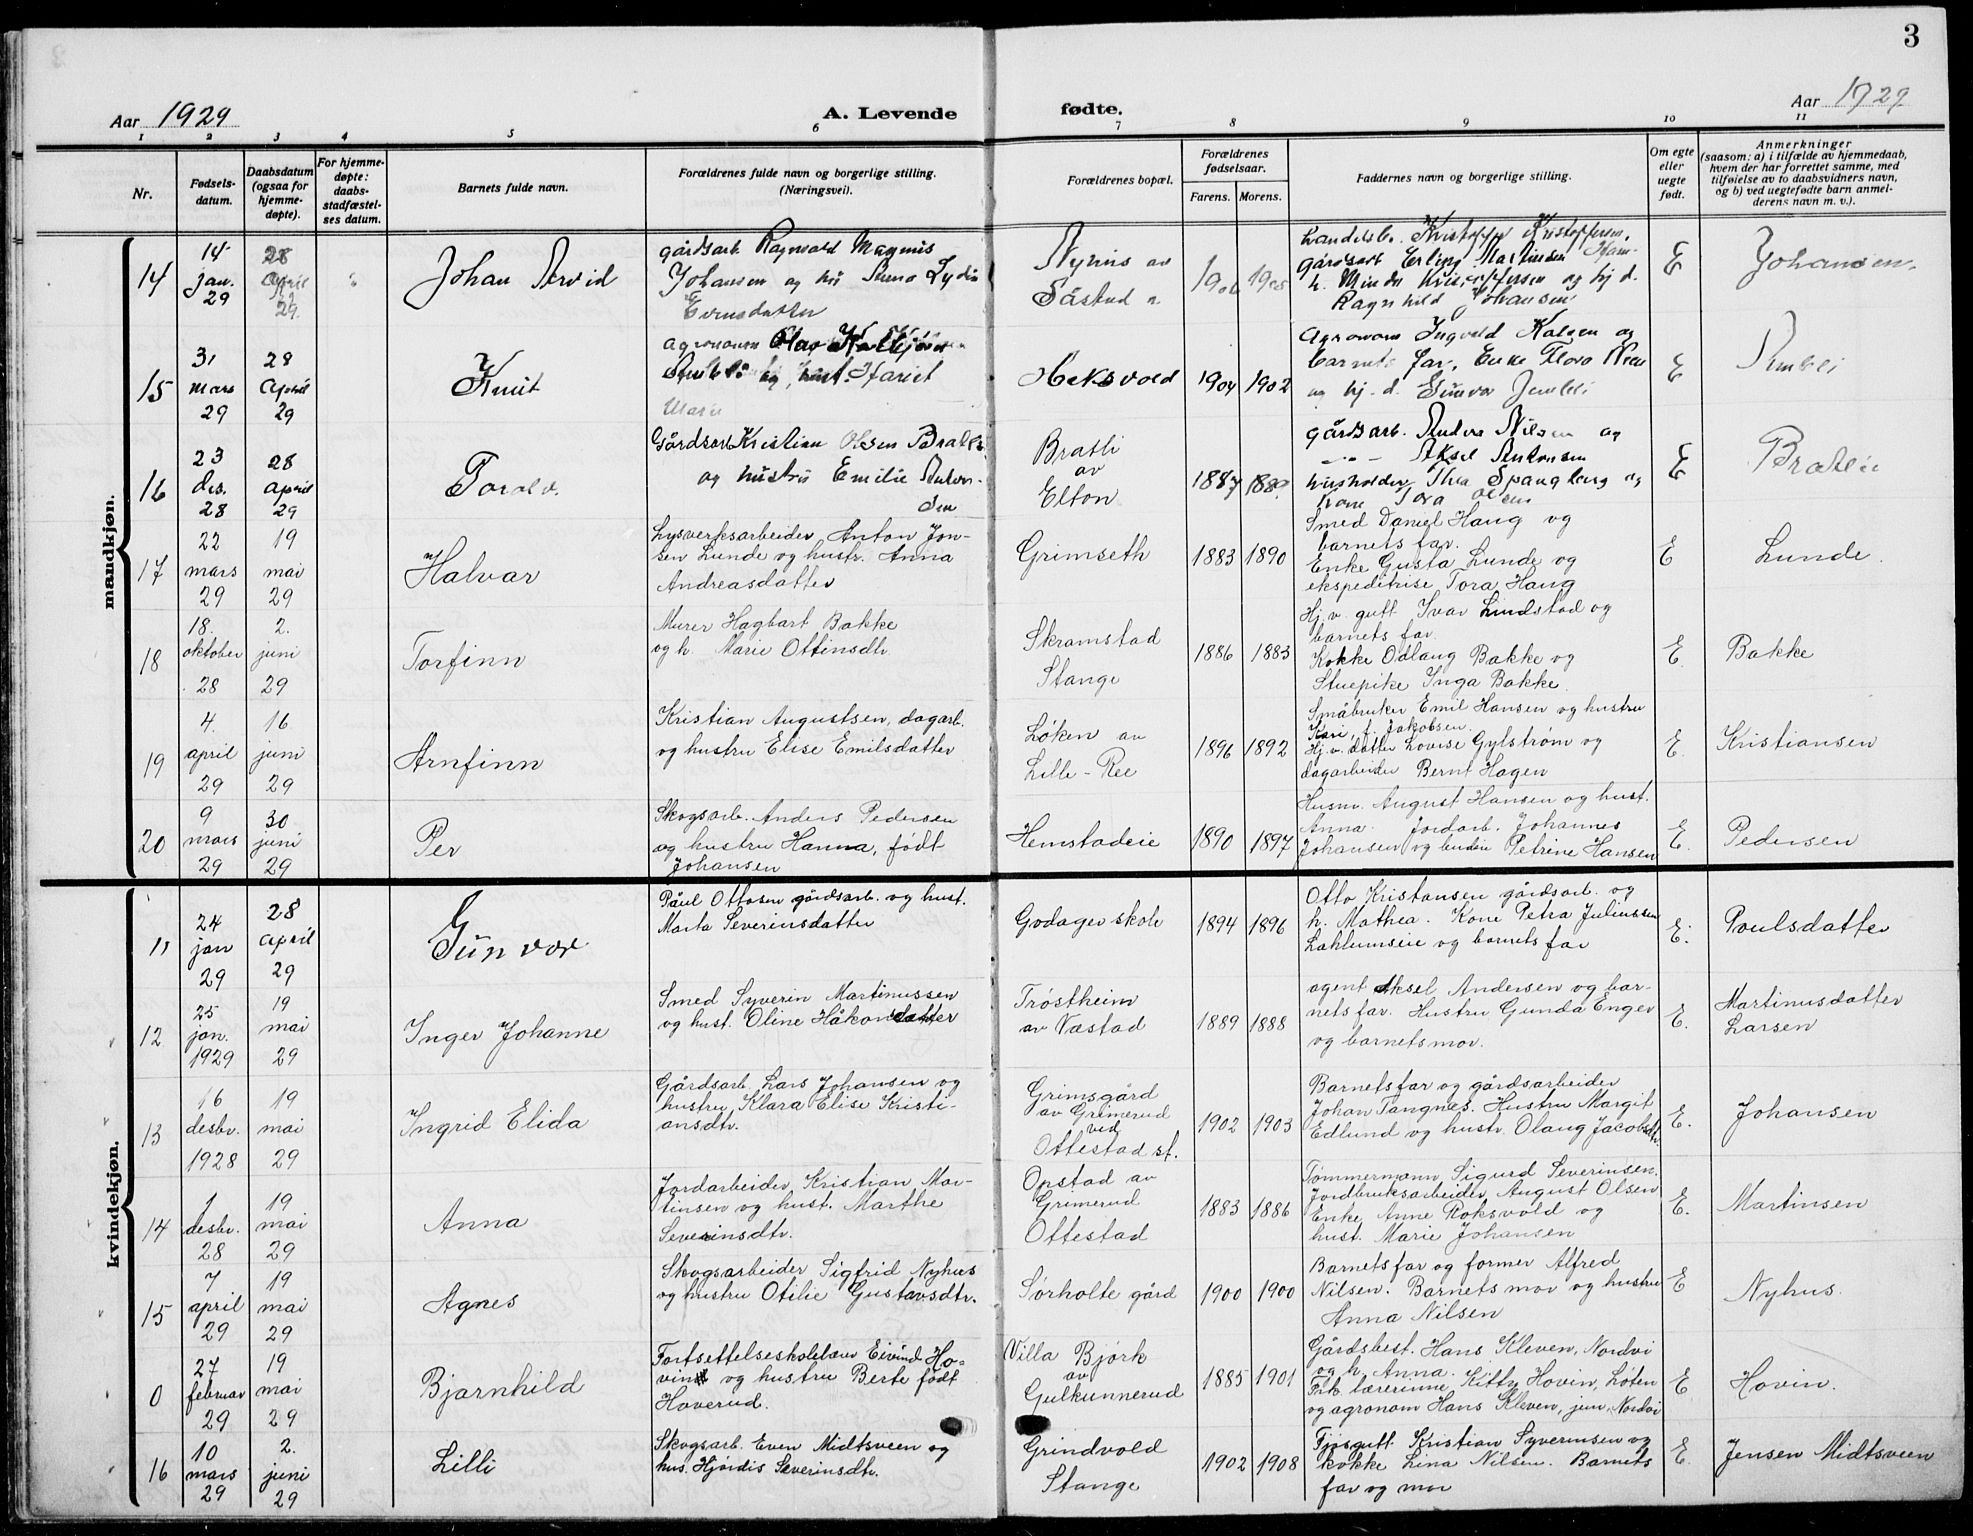 3
Aar 1929
A. Levende fødte.
Aar 1929
1 2 3 4 5 6 7 8 9 10 11
Nr.
Fødsels-
datum.
Daabsdatum
(ogsaa for
hjemme-
døpte).
For hjemme-
døpte:
daabs-
stadfæstel-
ses datum.
Barnets fulde navn.
Forældrenes fulde navn og borgerlige stilling.
(Næringsvei).
Forældrenes bopæl.
Forældrenes
fødselsaar.
Farens. Morens.
Faddernes navn og borgerlige stilling.
Om egte
eller
uegte
født.
Anmerkninger
(saasom: a) i tilfælde av hjemmedaab,
hvem der har forrettet samme, med
tilføielse av to daabsvidners navn,
og b) ved uegtefødte barn anmel-
derens navn m. v.).
mandkjøn.
14
14
jan.
29
28
April
29.
Johan Arvid
gårdsarb. Ragnvald Magnus
Johansen og
Nyhus av
Såstad
Kristoffersen,
gårdsarb Erling Martinsen
og hj d.
Ragnhild Johansen
E
Johansen.
15
31
mars
29
28
April
29
Knut
agronom
og hust. Hariet
Marie
Heksvold
1904 1902
Agronom Ingvald og
barnets far, Enke Flora
og hj. d. Gunvor
E
16
23
des.
28
28
april
29
Torolv.
Gårdsarb Kristian Olsen Bratli
og hustru Emilie Anton-
sen
Bratli
av
Elton
1887
gårdsarb. Anders Nilsen og
— " — Aksel Antonsen
husholder Thea Spangberg og
Kone Tora Olsen
E
Bratli
17
22
mars
29
19
mai
29
Halvar
Lysverksarbeider Anton Jon-
sen Lunde og hustr. Anna
Andreasdatter
Grimseth
1883 1890
Smed Daniel Haug og
barnets far.
Enke Gusta Lunde og
ekspeditrise Tora Haug
E
Lunde.
18
18.
oktober
28
2.
juni
29
Torfinn
Murer Hagbart Bakke
og h. Marie Ottinsdtr.
Skramstad
Stange
1886 1883
Hj.v. gutt Ivar Lindstad og
barnets far.
Kokke Odlaug Bakke og
Stuepike Inga Bakke.
E.
Bakke
19
4.
april
29
16
juni
29
Arnfinn
Kristian Augustsen, dagarb.
og hustru Elise Emilsdatter
Løken av
Lille-Ree
1896 1892
Småbruker Emil Hansen og hustru
Kari, f. Jakobsen.
Hj.v. datter Lovise Gylstrøm og
dagarbeider Bernt Hagen
E.
Kristiansen
20
9
mars
29
30
juni
29
Per
Skogsarb. Anders Pedersen
og hustru Hanna, født
Johansen
Hemstadeie
1890 1897
Husm. August Hansen og hust.
Anna. Jordarb. Johannes
Johansen og budeie Petrine Hansen
E.
Pedersen
kvindekjøn.
11
24
jan
29
28
april
29
Gunvor
Paul Ottosen gårdsarb. og hust.
Marta Severinsdatter
Godager skole
1894 1896
Otto Kristansen gårdsarb. og
h. Mathea. Kone Petra Juliussen
Laklumseie og barnets far
E.
Poulsdatter
12
25
jan.
1929
19
mai
29
Inger Johanne
Smed Syverin Martinussen
og hust. Oline Håkonsdatter
Trøstheim
av Væstad
1889 1888
agent Aksel Andersen og bar-
nets far. Hustru Gunda Enger
og barnets mor.
E.
Martinusdatter
Larsen
13
16
desbr.
1928
19
mai
29
Ingrid Elida
Gårdsarb. Lars Johansen og
hustru Klara Elise Kristi-
ansdtr.
Grimsgård
av Grimerud
ved
Ottestad st.
1902 1903
Barnets far og gårdsarbeider
Johan Tangnes. Hustru Margit
Edlund og hustr. Olaug Jacobsdtr.
E.
Johansen
14
1
desbr.
28
19
mai
29
Anna
Jordarbeider Kristian Mar-
tinsen og hust. Marthe
Severinsdtr.
Opstad av
Grimerud
Ottestad
1883 1886
Tømmermann Sigurd Severinsen.
Jordbruksarbeider August Olsen
Enke Anne Roksvold og
hust. Marie Johansen
E.
Martinsen
15
7
april
29
19
mai
29
Agnes
Skogsarbeider Sigfrid Nyhus
og hustru Otilie Gustavsdtr.
Sørholte gård
1900 1900
Barnets far og former Alfred
Nilsen. Barnets mor og hustru
Anna Nilsen
E
Nyhus.
0
27
februar
29
19
mai
29
Bjarnhild
Fortsettelseskolelærer Eivind Ho-
vin og hustru Berte født
Hoverud.
Villa Bjørk
av
Gulkunnerud
1885 1901
Gårdsbest. Hans Kleven, Nordvi
og h. Anna.
Frk. lærerinne Kitty Hovin, Løten
og agronom Hans Kleven, jun. Nordvi
E
Hovin.
16
10
mars
29
2.
juni
29
Lilli
Skogsarb. Even Midtsveen og
hus. Hjørdis Severinsdtr.
Grindvold
Stange
1902 1908
Fjøsgutt Kristian Syverinsen og
kokke Lina Nilsen. Barnets
far og mor
E.
Jensen Midtsveen